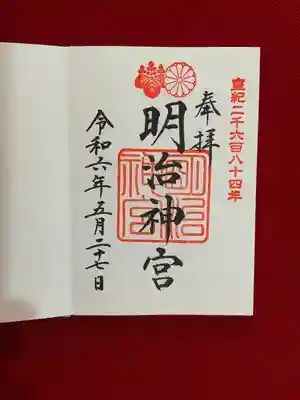 皇紀二千六百八十四年
奉拝
明治神宮
明治神宮
令和六年五月二十七日